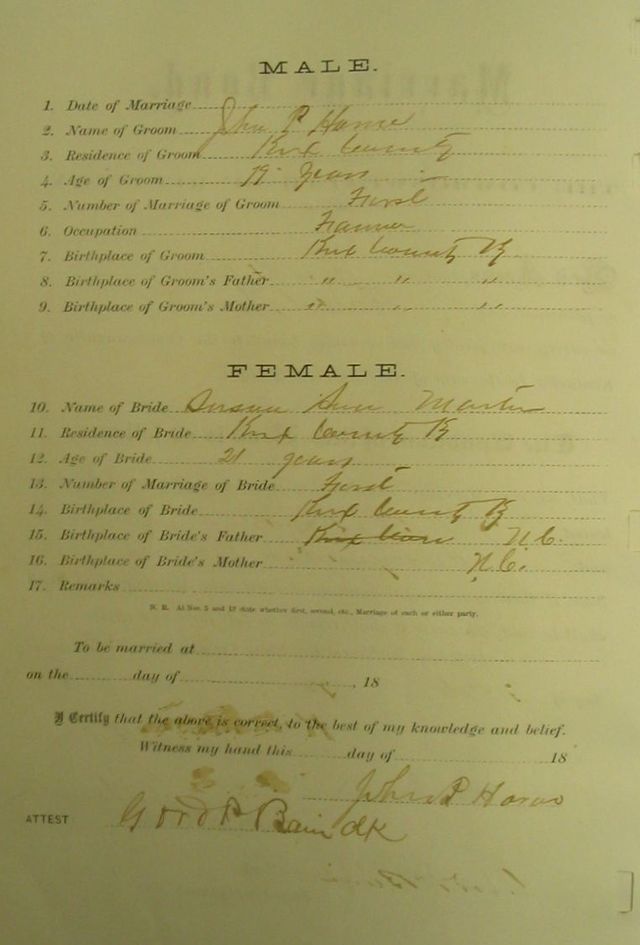 MALE.
1. Date of Marriage
2. Name of Groom John P
3. Residence of Groom Knox County
4. Age of Groom 19 years
5. Number of Marriage of Groom First
6. Occupation Farmer
7. Birthplace of Groom Knox County Ky
8. Birthplace of Groom's Father " " "
9. Birthplace of Groom's Mother " " "
FEMALE.
10. Name of Bride Ann Martin
11. Residence of Bride Knox County Ky
12. Age of Bride 21 years
13. Number of Marriage of Bride First
14. Birthplace of Bride Knox County Ky
15. Birthplace of Bride's Father N.C.
16. Birthplace of Bride's Mother N.C.
17. Remarks
N. B. At Nos. 5 and 13 state whether first, second, etc., Marriage of each or either party.
To be married at
on the day of , 18
I Certify that the above is correct, to the best of my knowledge and belief.
Witness my hand this day of 18
John P
ATTEST